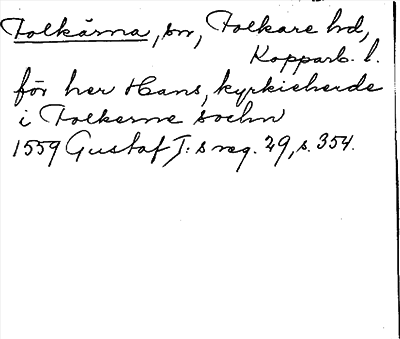 Folkärna, sn, Folkare hd,
Kopparb. l.
för her Hans, kyrkieherde
i Folkerne sochn
1559 Gustaf I:s reg. 29, s. 354.